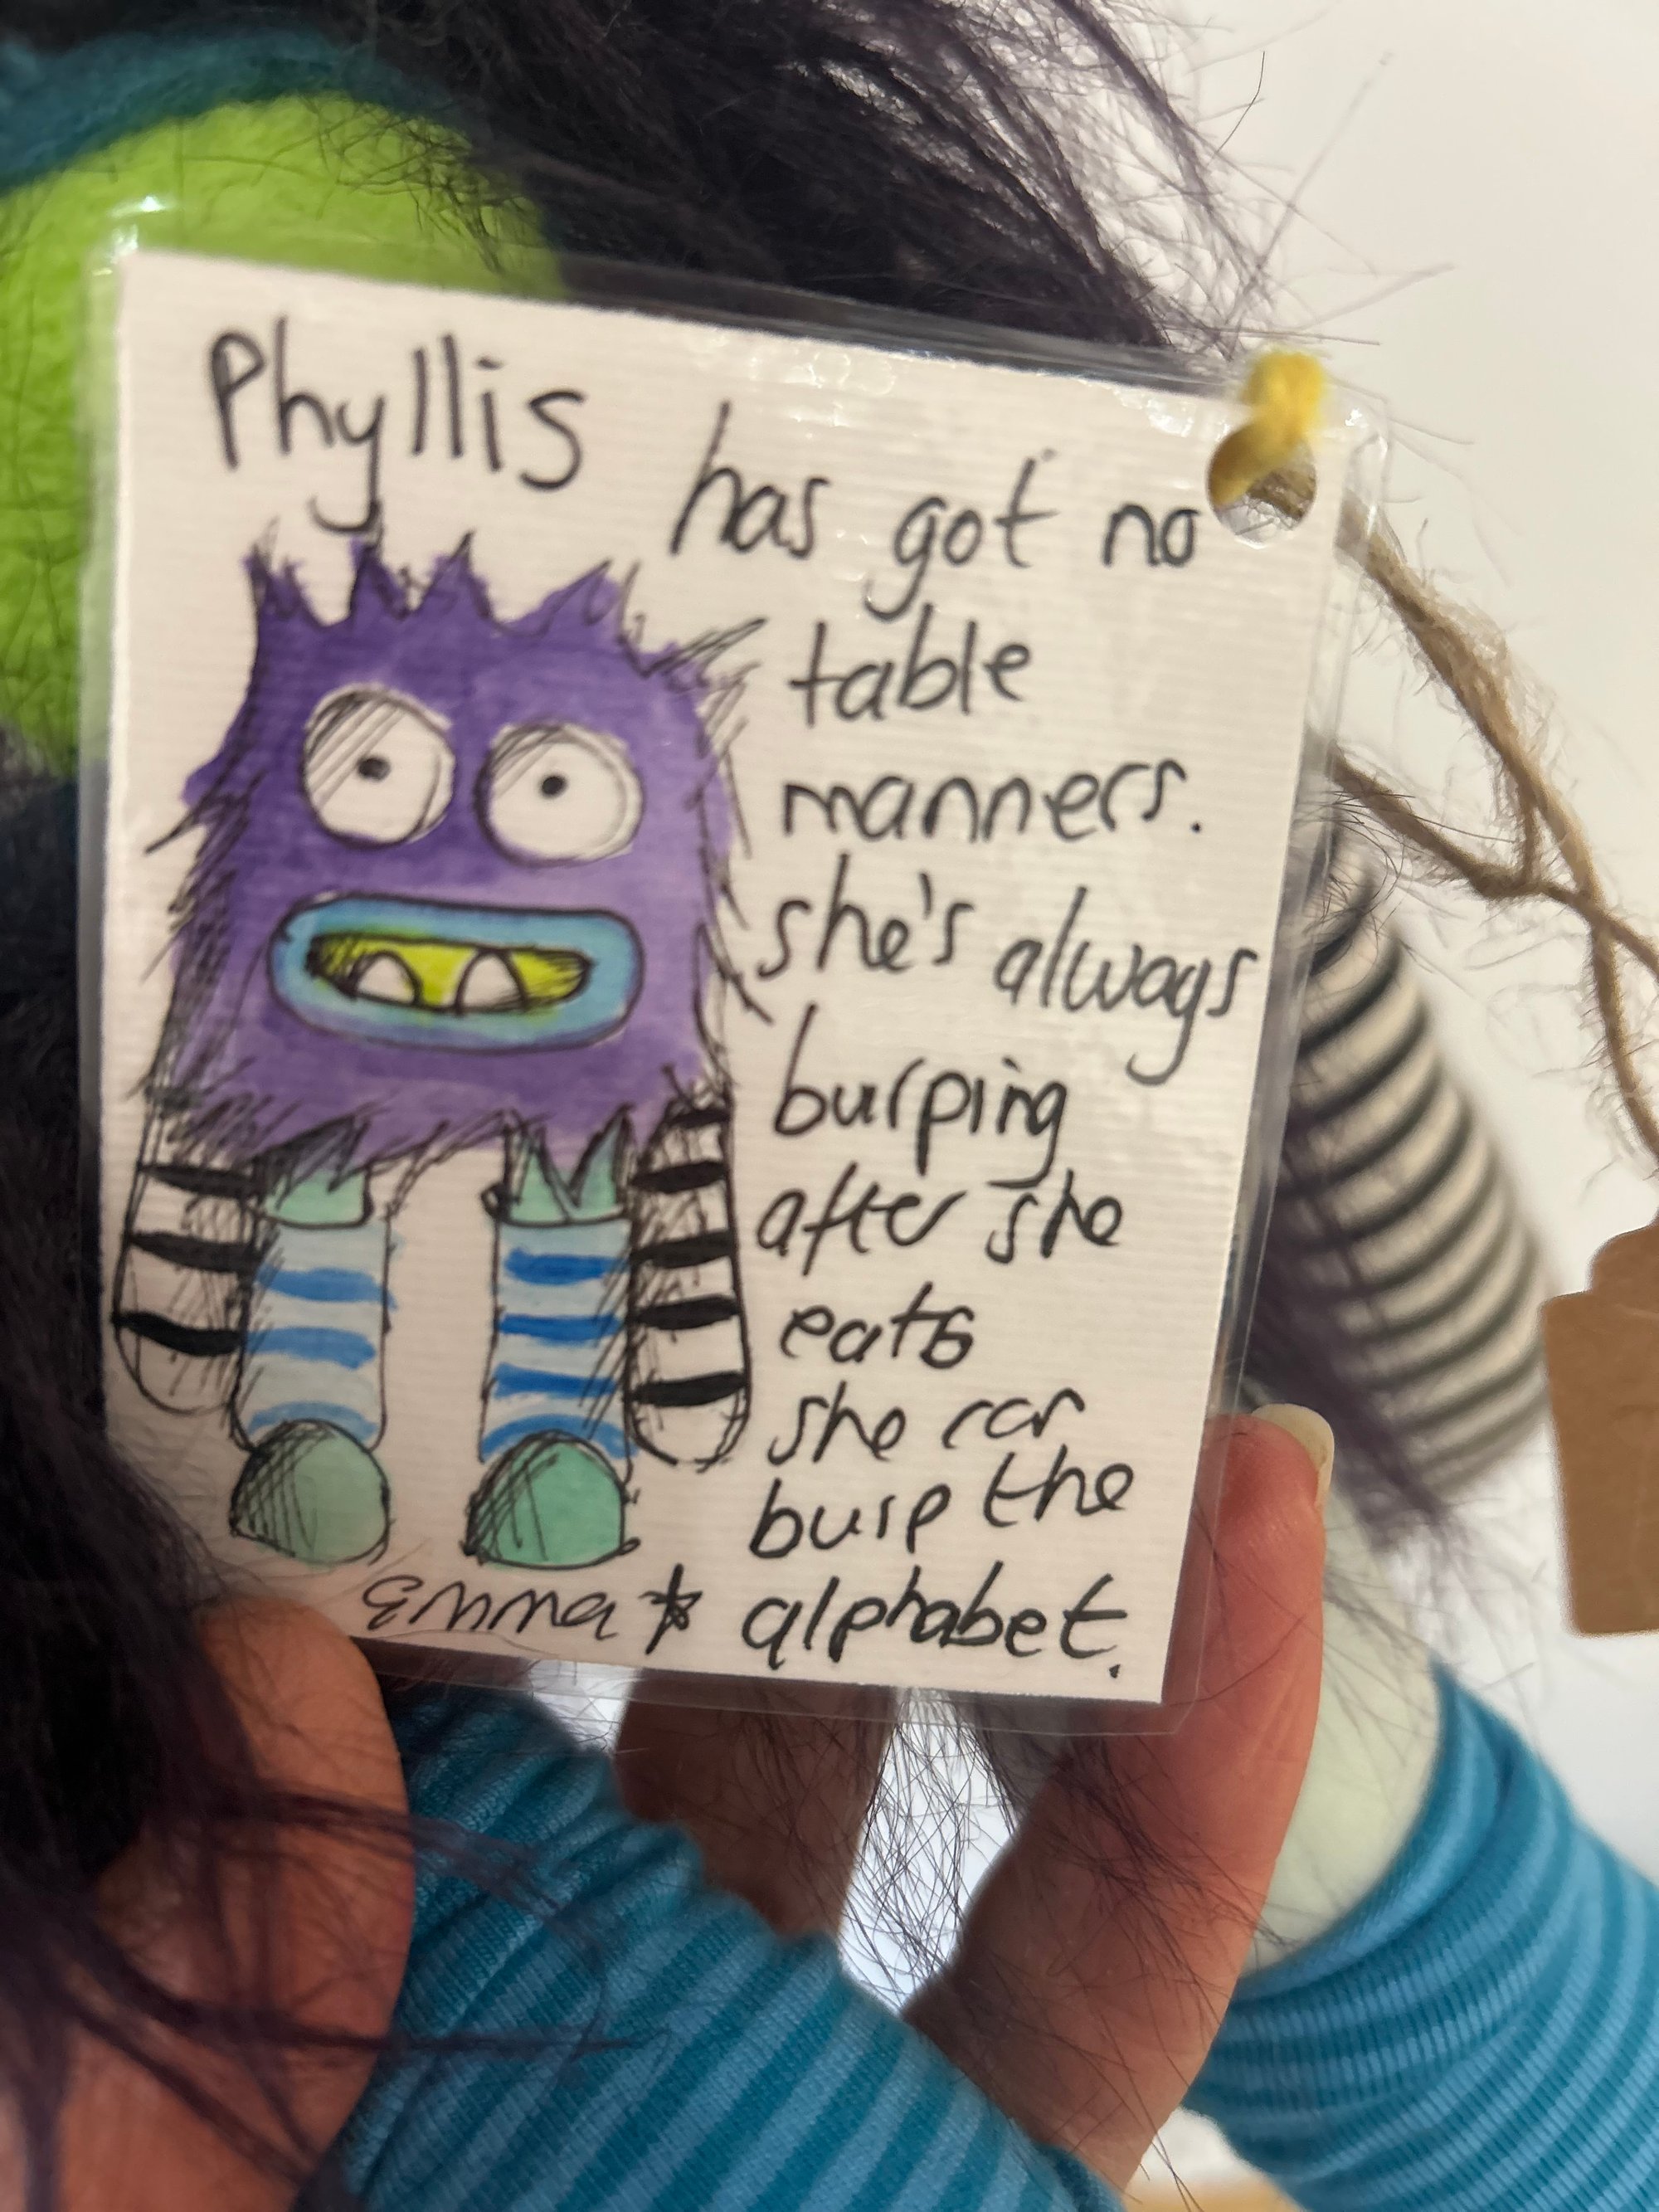 Phyllis
has got no
table
manners.
she's always
burping
after she
eats
she can
burp the
alphabet.
Emma